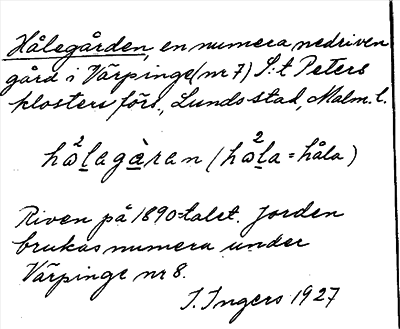 Hålegården, en numera nedriven
gård i Värpinge (nr 7) S:t Peters
klosters förs., Lunds stad, Malm. l.
hå²lagà̱ran (hå²la = håla)
Riven på 1890-talet. Jorden
brukas numera under
Värpinge nr 8.
I. Ingers 1927